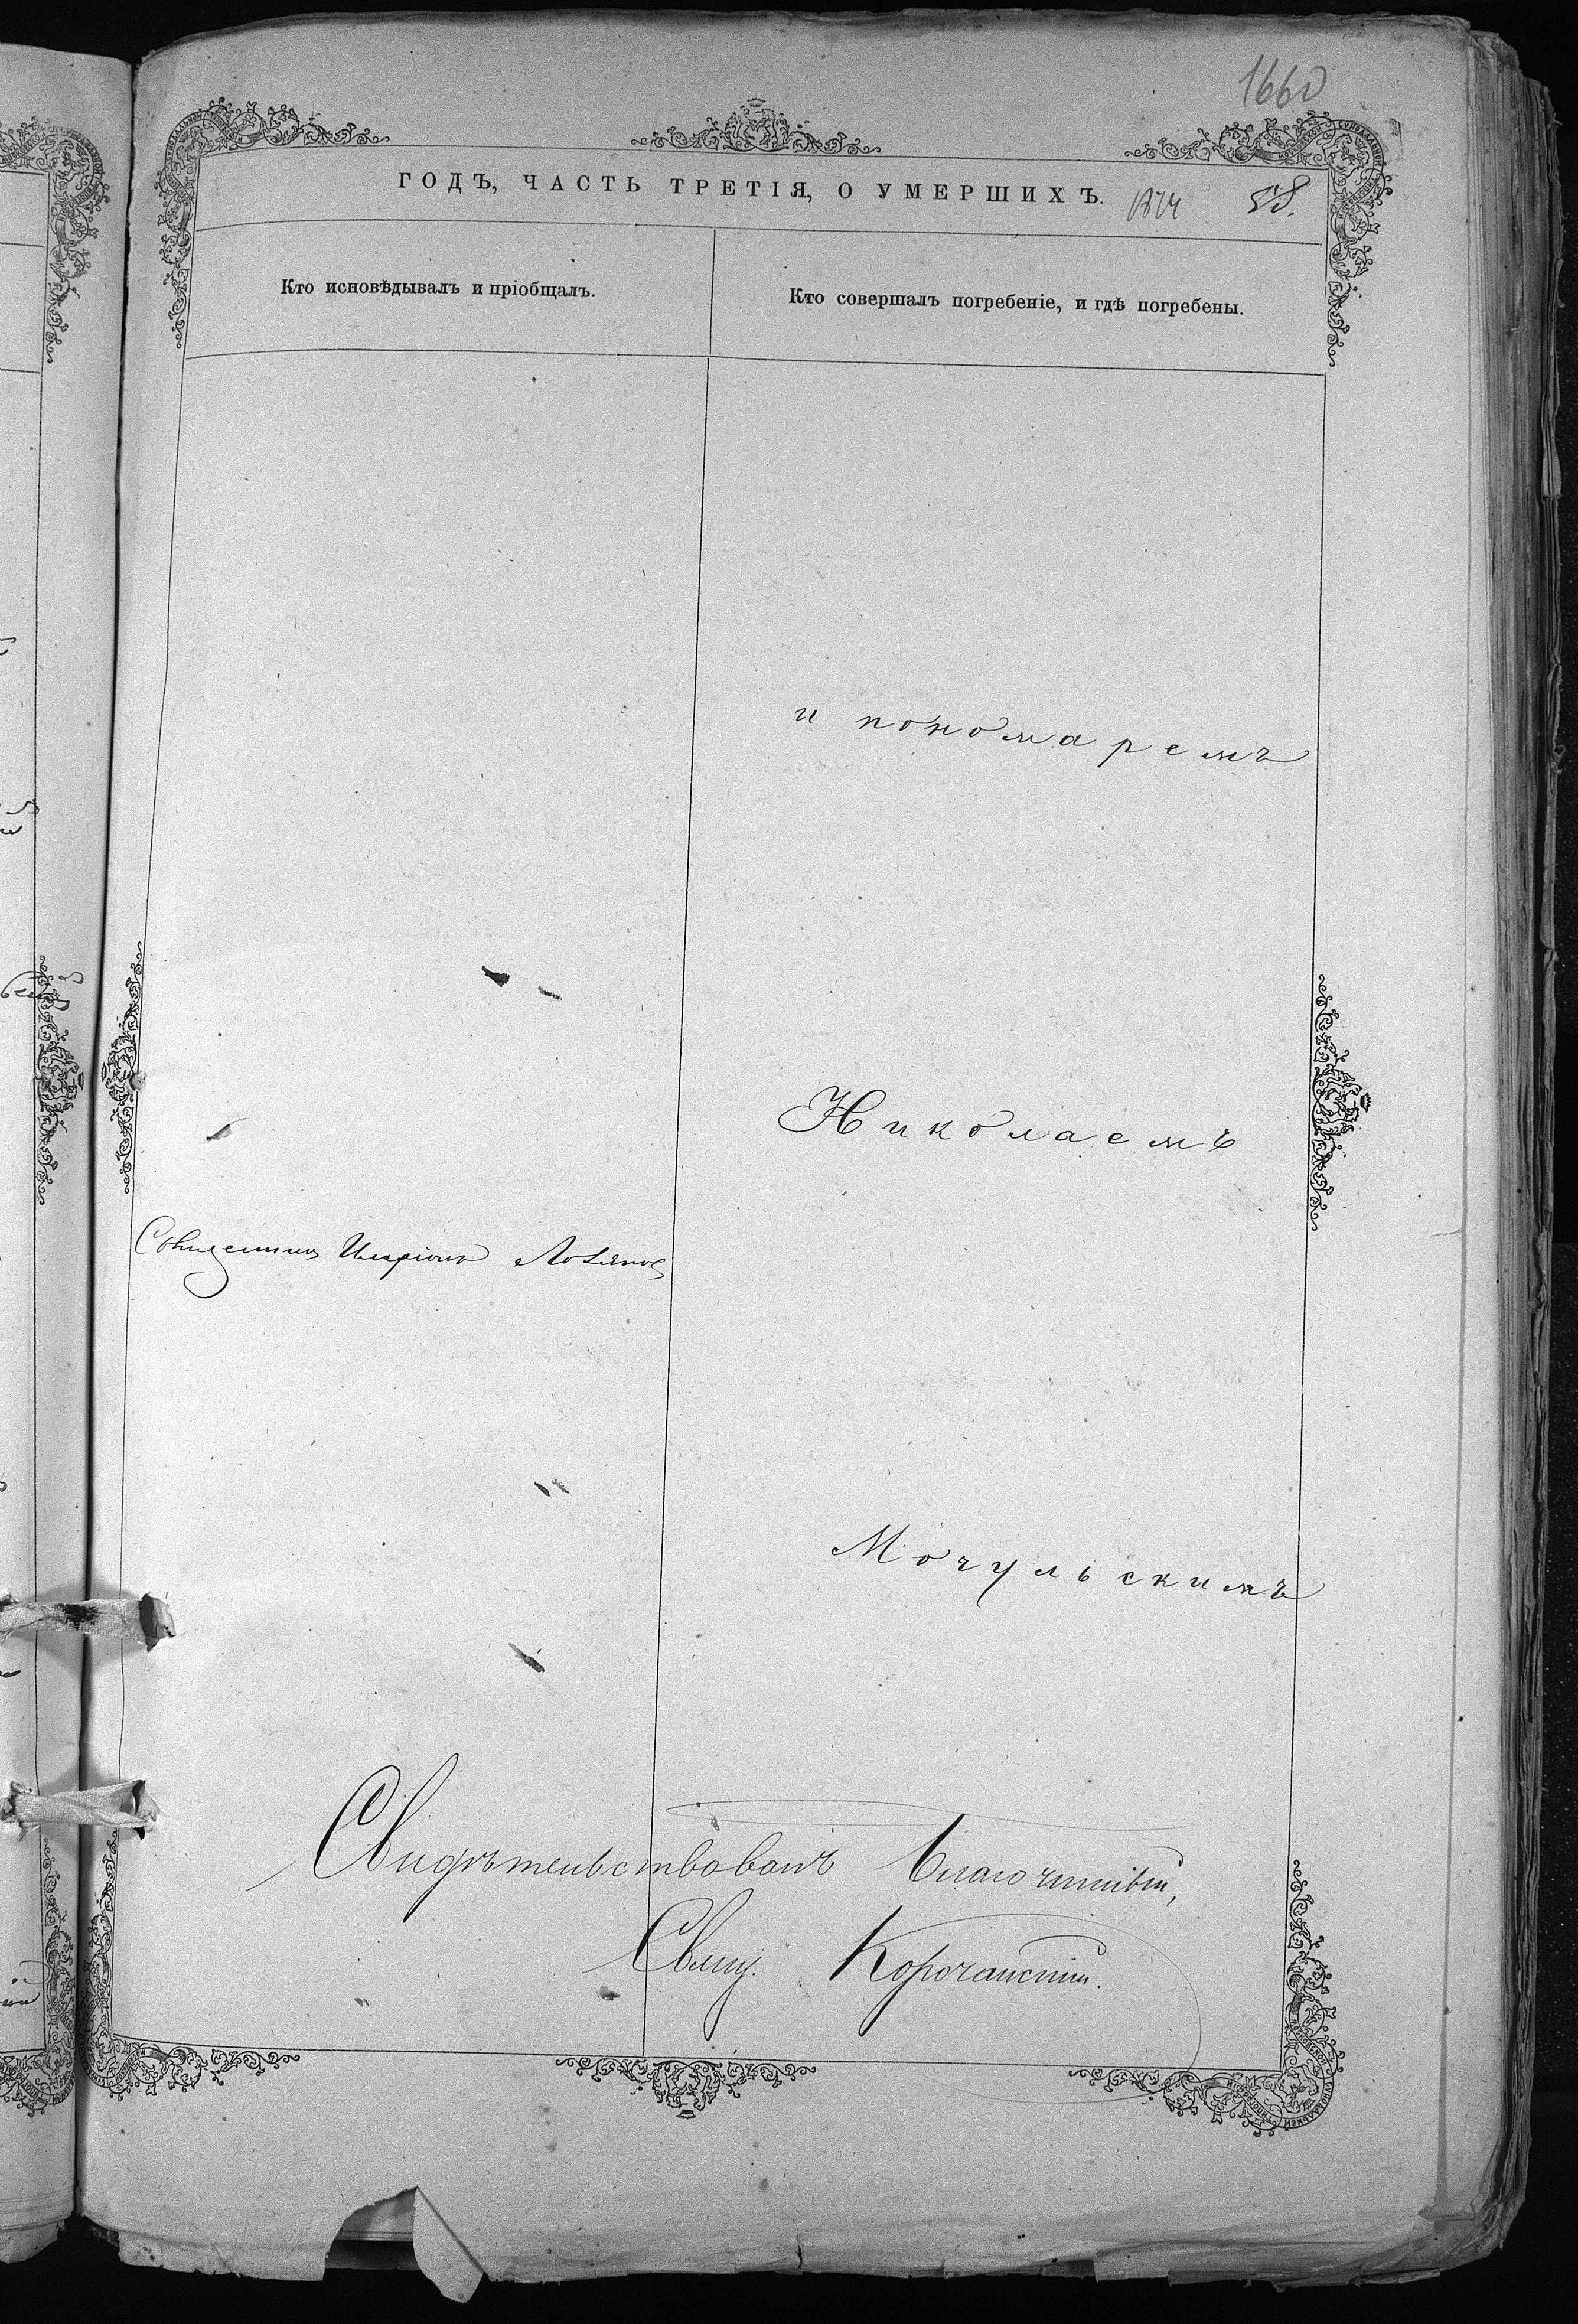 1660
ГОДЪ, ЧАСТЬ ТРЕТІЯ, О УМЕРШИХЪ. 1874 58.
Кто исповѣдывалъ и пріобщалъ.
Кто совершалъ погребеніе, и гдѣ погребены.
и пономаремъ
Николаемъ
Священникъ Иларіонъ
Мочульскимъ
Свидѣтельствовалъ Благочинный,
Свящ. Корочанскій.